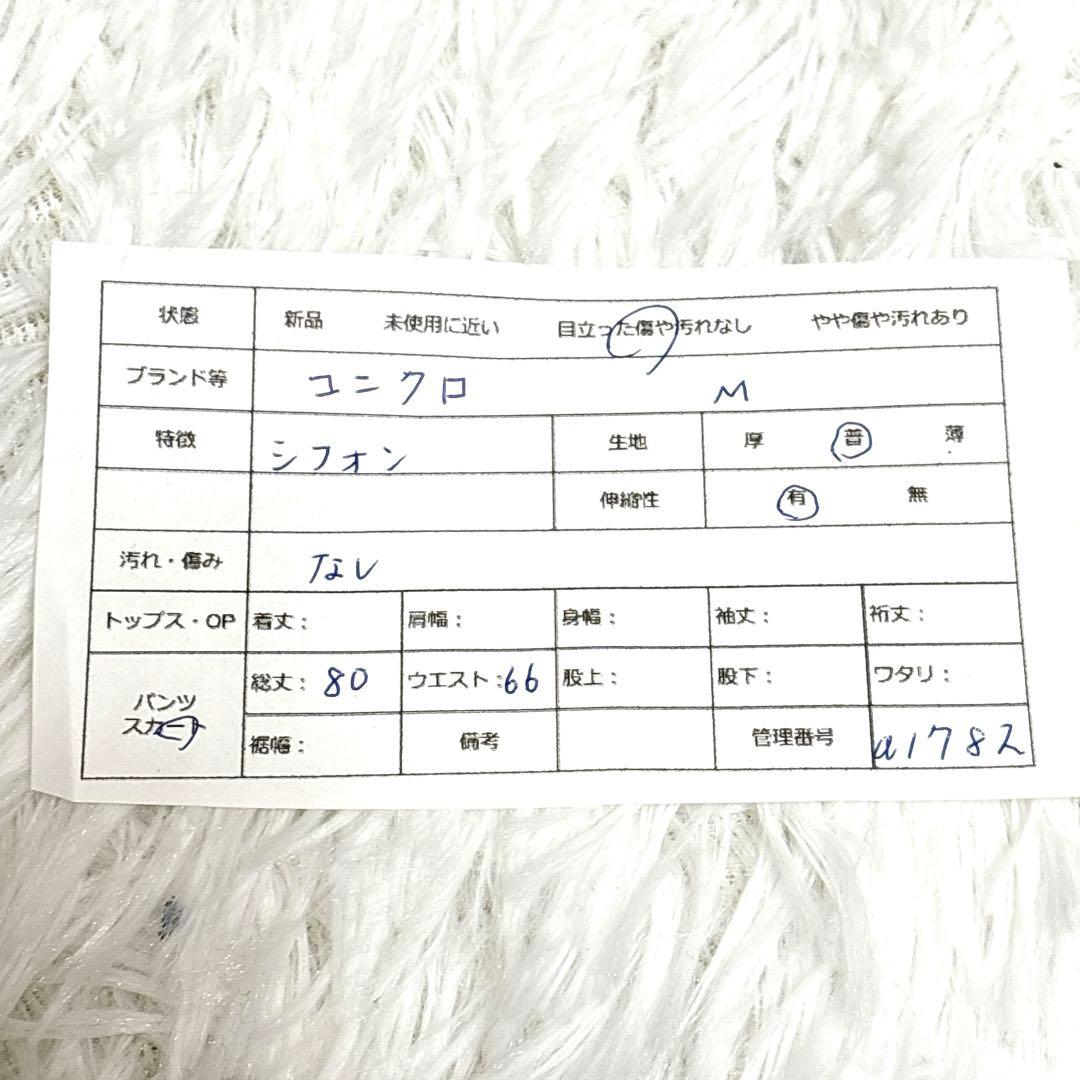 状態 新品 未使用に近い 目立った傷や汚れなし やや傷や汚れあり
ブランド等 ユニクロ M
特徴 シフォン 生地 厚 普 薄
伸縮性 有 無
汚れ・傷み なし
トップス・OP 着丈: 肩幅: 身幅: 袖丈: 裄丈:
パンツ 総丈: 80 ウエスト:66 股上: 股下: ワタリ:
スカート 裾幅: 備考 管理番号 a1782